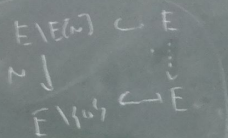 E \ E[N] ⊂ E
N ↓ ⋮ ↓
E \ {0} ↪ E